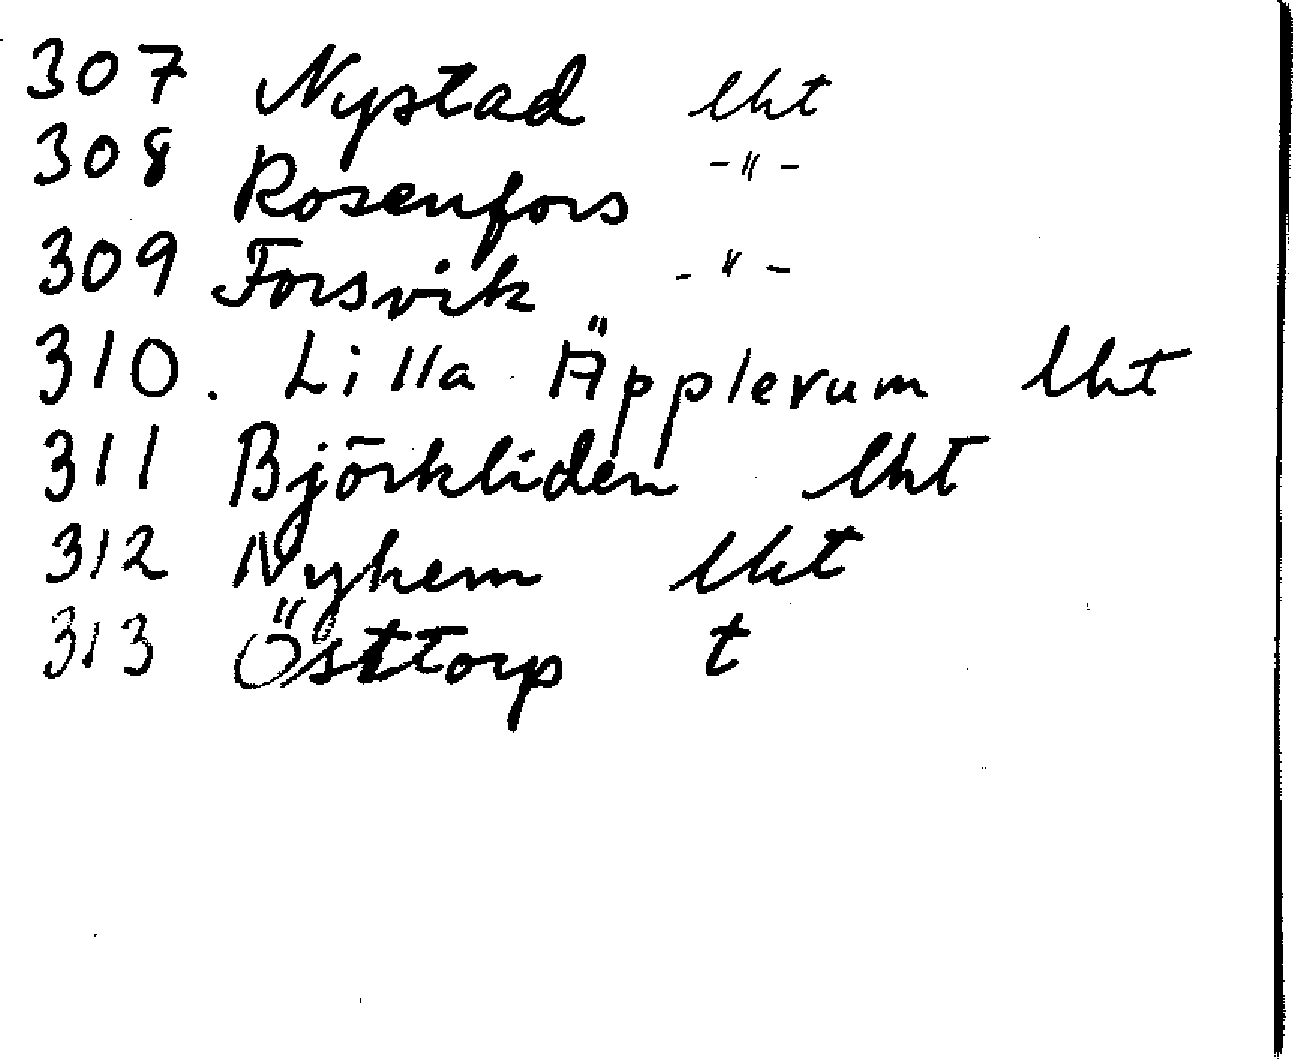 307 Nystad lht
308 Rosenfors -"-
309 Forsvik -"-
310. Lilla Äpplerum lht
311 Björkliden lht
312 Nyhem lht
313 Östtorp t